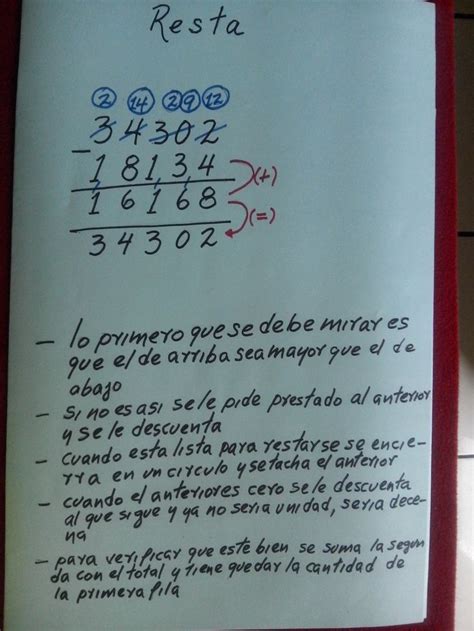 Resta
2 14 2 9 12
3 4 3 0 2
- 1 8 1 3 4
(+)
1 6 1 6 8
(=)
3 4 3 0 2
- lo primero que se debe mirar es
que el de arriba sea mayor que el de
abajo
- Si no es asi se le pide prestado al anterior
y se le descuenta
- cuando esta lista para restarse se encie-
rra en un circulo y se tacha el anterior
- cuando el anterior es cero se le descuenta
al que sigue y ya no seria unidad, seria dece-
na
- para verificar que este bien se suma la segun
da con el total y tiene que dar la cantidad de
la primera fila